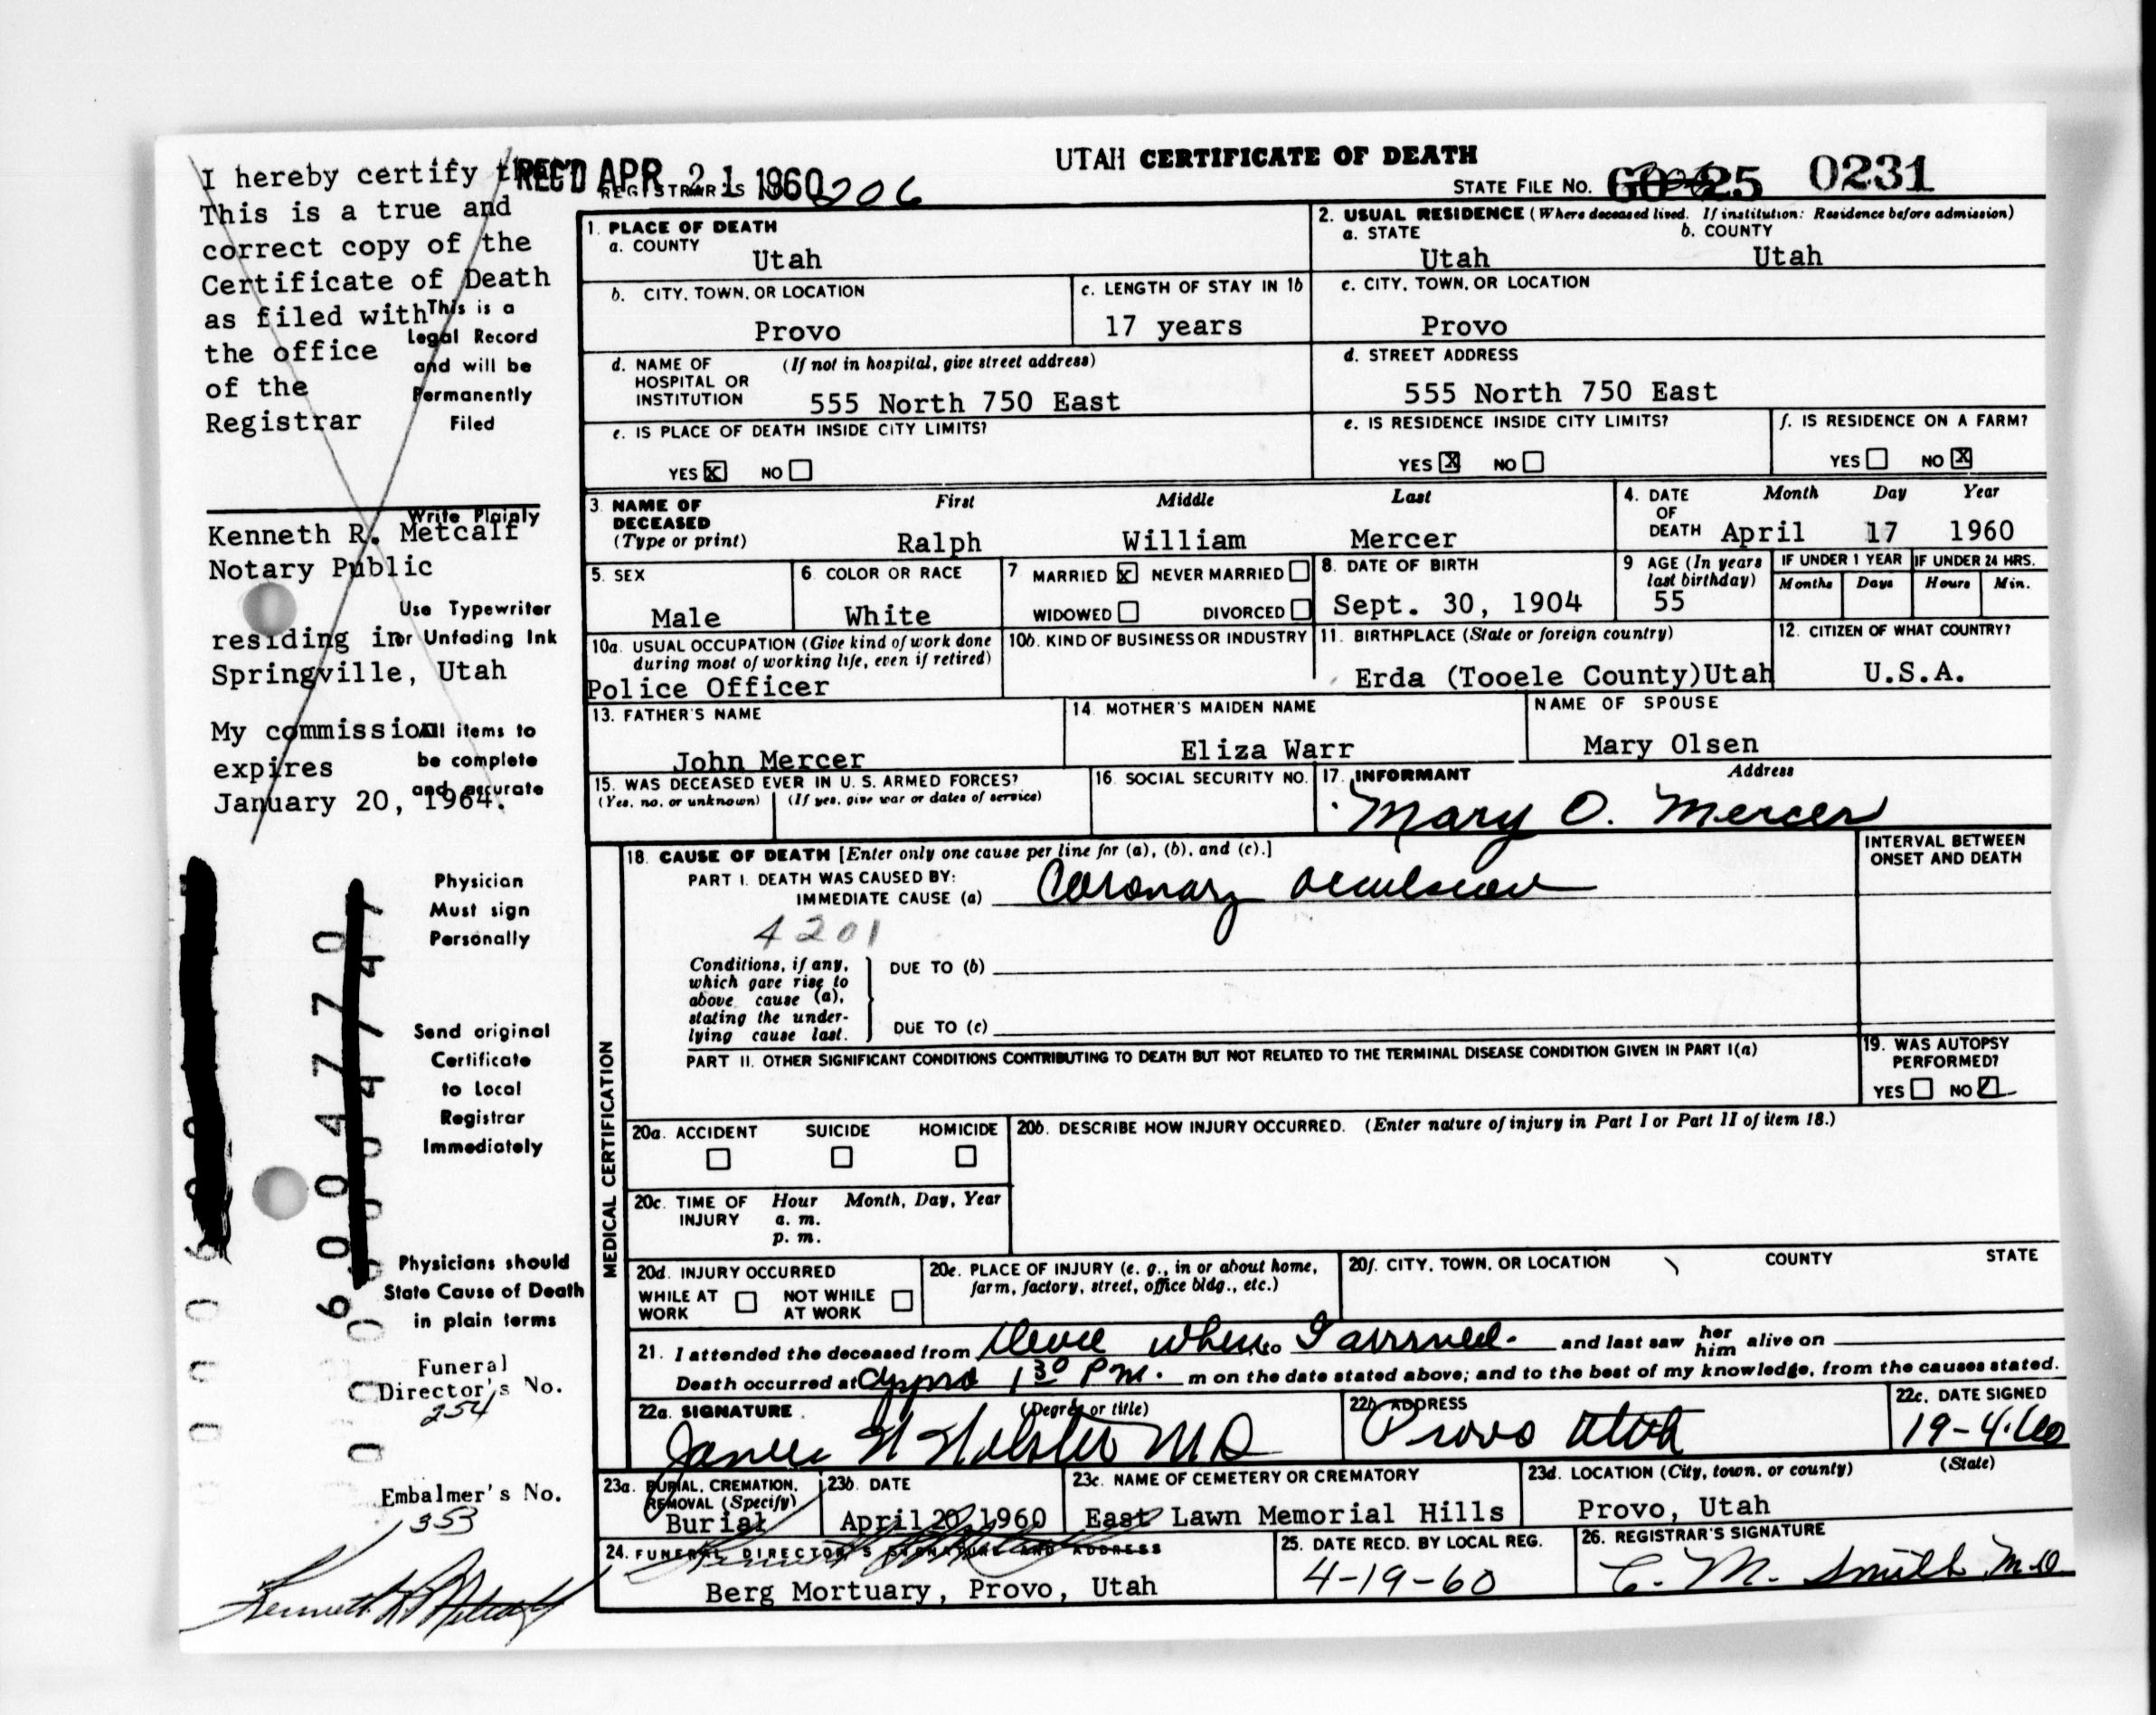 I hereby certify that
This is a true and
correct copy of the
Certificate of Death
as filed with
the office
of the
Registrar
This is a
Legal Record
and will be
Permanently
Filed
Write Plainly
Kenneth R. Metcalf
Notary Public
residing in
Springville, Utah
Use Typewriter
or Unfading Ink
My commission
expires
January 20, 1964.
All items to
be complete
and accurate
Physician
Must sign
Personally
Send original
Certificate
to Local
Registrar
Immediately
Physicians should
State Cause of Death
in plain terms
Funeral
Director's No.
254
Embalmer's No.
353
600 4770
REC'D APR 21 1960
REGISTRAR'S NO. 206
UTAH CERTIFICATE OF DEATH
STATE FILE NO. 60-25 0231
1. PLACE OF DEATH
a. COUNTY
Utah
2. USUAL RESIDENCE (Where deceased lived. If institution: Residence before admission)
a. STATE b. COUNTY
Utah Utah
b. CITY, TOWN, OR LOCATION
Provo
c. LENGTH OF STAY IN 1b
17 years
c. CITY, TOWN, OR LOCATION
Provo
d. NAME OF (If not in hospital, give street address)
HOSPITAL OR
INSTITUTION 555 North 750 East
d. STREET ADDRESS
555 North 750 East
e. IS PLACE OF DEATH INSIDE CITY LIMITS?
YES X NO
e. IS RESIDENCE INSIDE CITY LIMITS?
YES X NO
f. IS RESIDENCE ON A FARM?
YES NO X
3. NAME OF DECEASED
(Type or print)
First Middle Last
Ralph William Mercer
4. DATE OF DEATH
Month Day Year
April 17 1960
5. SEX
Male
6. COLOR OR RACE
White
7. MARRIED X NEVER MARRIED
WIDOWED DIVORCED
8. DATE OF BIRTH
Sept. 30, 1904
9. AGE (In years last birthday)
55
IF UNDER 1 YEAR
Months Days
IF UNDER 24 HRS.
Hours Min.
10a. USUAL OCCUPATION (Give kind of work done
during most of working life, even if retired)
Police Officer
10b. KIND OF BUSINESS OR INDUSTRY
11. BIRTHPLACE (State or foreign country)
Erda (Tooele County)Utah
12. CITIZEN OF WHAT COUNTRY?
U.S.A.
13. FATHER'S NAME
John Mercer
14. MOTHER'S MAIDEN NAME
Eliza Warr
NAME OF SPOUSE
Mary Olsen
15. WAS DECEASED EVER IN U. S. ARMED FORCES?
(Yes, no, or unknown) (If yes, give war or dates of service)
16. SOCIAL SECURITY NO.
17. INFORMANT Address
Mary O. Mercer
MEDICAL CERTIFICATION
18. CAUSE OF DEATH [Enter only one cause per line for (a), (b), and (c).]
PART I. DEATH WAS CAUSED BY:
IMMEDIATE CAUSE (a) Coronary occulsion
4201
INTERVAL BETWEEN
ONSET AND DEATH
Conditions, if any,
which gave rise to
above cause (a),
stating the under-
lying cause last.
DUE TO (b)
DUE TO (c)
PART II. OTHER SIGNIFICANT CONDITIONS CONTRIBUTING TO DEATH BUT NOT RELATED TO THE TERMINAL DISEASE CONDITION GIVEN IN PART I(a)
19. WAS AUTOPSY
PERFORMED?
YES NO
20a. ACCIDENT SUICIDE HOMICIDE
20b. DESCRIBE HOW INJURY OCCURRED. (Enter nature of injury in Part I or Part II of item 18.)
20c. TIME OF INJURY
Hour Month, Day, Year
a. m.
p. m.
20d. INJURY OCCURRED
WHILE AT WORK NOT WHILE AT WORK
20e. PLACE OF INJURY (e. g., in or about home,
farm, factory, street, office bldg., etc.)
20f. CITY, TOWN, OR LOCATION COUNTY STATE
21. I attended the deceased from when I arrived. and last saw her him alive on
Death occurred at Approx 1 30 P m. m on the date stated above; and to the best of my knowledge, from the causes stated.
22a. SIGNATURE (Degree or title)
James W Webster MD
22b. ADDRESS
Provo Utah
22c. DATE SIGNED
19-4-60
23a. BURIAL, CREMATION,
REMOVAL (Specify)
Burial
23b. DATE
April 20, 1960
23c. NAME OF CEMETERY OR CREMATORY
East Lawn Memorial Hills
23d. LOCATION (City, town, or county) (State)
Provo, Utah
24. FUNERAL DIRECTOR'S SIGNATURE AND ADDRESS
Berg Mortuary, Provo, Utah
25. DATE RECD. BY LOCAL REG.
4-19-60
26. REGISTRAR'S SIGNATURE
C. M. Smith M.D.
Kenneth R Metcalf